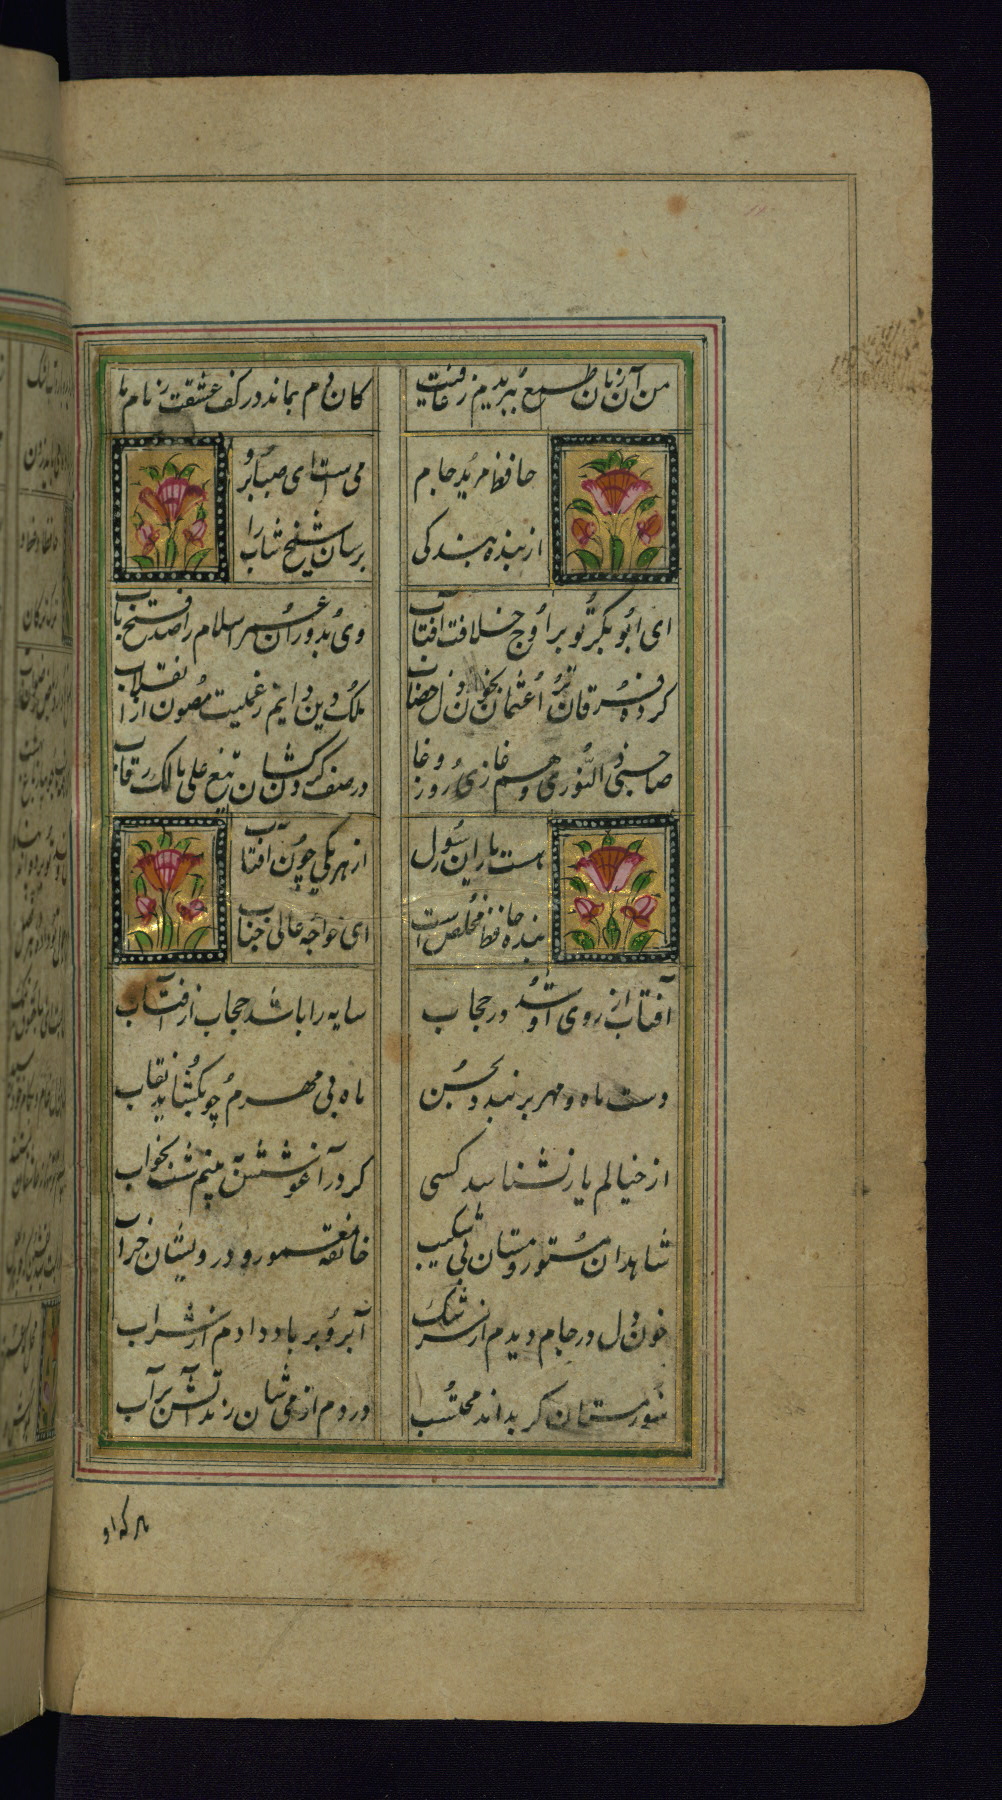 من آن زمان طمع ببریدیم ز عافیت
کان دم بماند در کف عشقت زمام ما
حافظ مرید جام
می است ای صبا برو
از بنده بندگی
برسان شیخ شاب را
ای ابوبکر تو بر اوج خلافت آفتاب
وی بدوران عمر اسلام را صد فتح باب
کرده فرقان ترا عثمان بخون دل خضاب
ملک دین دایم ز عملیت مصون از انقلاب
صاحبی ذی النوری و هم غازی روز وغا
در صف گردنکشان تیغ علی مالک رقاب
هست یاران رسول
از هر یکی چون آفتاب
بنده حافظ مخلص است
ای خواجه عالی جناب
آفتاب از روی او شد در حجاب
سایه را باشد حجاب از آفتاب
دست ماه و مهر بربندد بحسن
ماه بی مهرم چو بگشاید نقاب
از خیالم باز نشناسد کسی
گر در آغوشش بینم شب بخواب
شاهدان مستور و مستان بی شکیب
خانقه معمور و درویشان خراب
خون دل در جام دیدم از سرشک
آبرو بر باد دادم از شراب
سوز مستان گر بداند محتسب
در دم از می شان زند آتش بر آب
هر که او